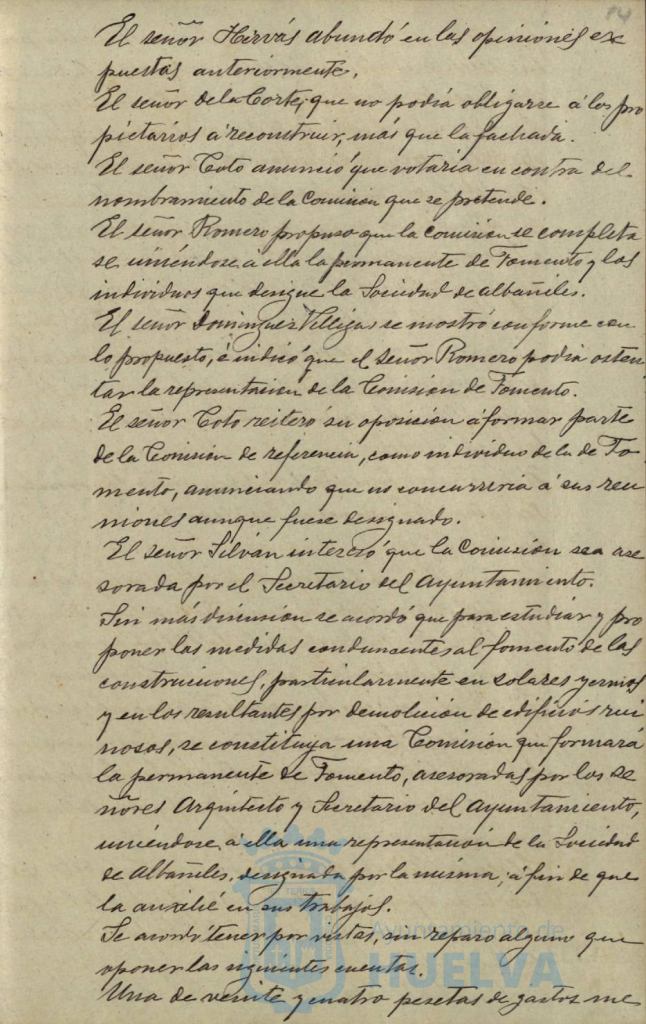 14
El señor Hervás abundó en las opiniones ex
puestas anteriormente.
El señor de la Corte, que no podia obligarse á los pro
pietarios á reconstruir, más que la fachada.
El señor Coto anunció que votaria en contra del
nombramiento de la Comision que se pretende.
El señor Romero propuso que la comisión se completa
se uniéndose a ella la permanente de Fomento y los
individuos que designe la Sociedad de albañiles.
El señor Dominguez Villegas se mostró conforme con
lo propuesto, é indicó que el señor Romero podia osten
tar la representacion de la Comision de Fomento.
El señor Coto reiteró su oposición á formar parte
de la Comision de referencia, como individuo de la de Fo
mento, anunciando que no concurriria á sus reu
niones aunque fuese designado.
El señor Silván interesó que la Comision sea ase
sorada por el Secretario del Ayuntamiento.
Sin más discusion se acordó que para estudiar y pro
poner las medidas conducentes al fomento de las
construcciones, particularmente en solares yermos
y en los resultantes por demolición de edificios rui
nosos, se constituya una Comision que formará
la permanente de Fomento, asesoradas por los se
ñores Arquitecto y Secretario del Ayuntamiento,
uniéndose á ella una representación de la Sociedad
de Albañiles, designada por la misma, á fin de que
la auxilié en sus trabajos.
Se acordó tener por vistas, sin reparo alguno que
oponer las siguientes cuentas.
Una de veinte y cuatro pesetas de gastos me
Ayuntamiento de
HUELVA